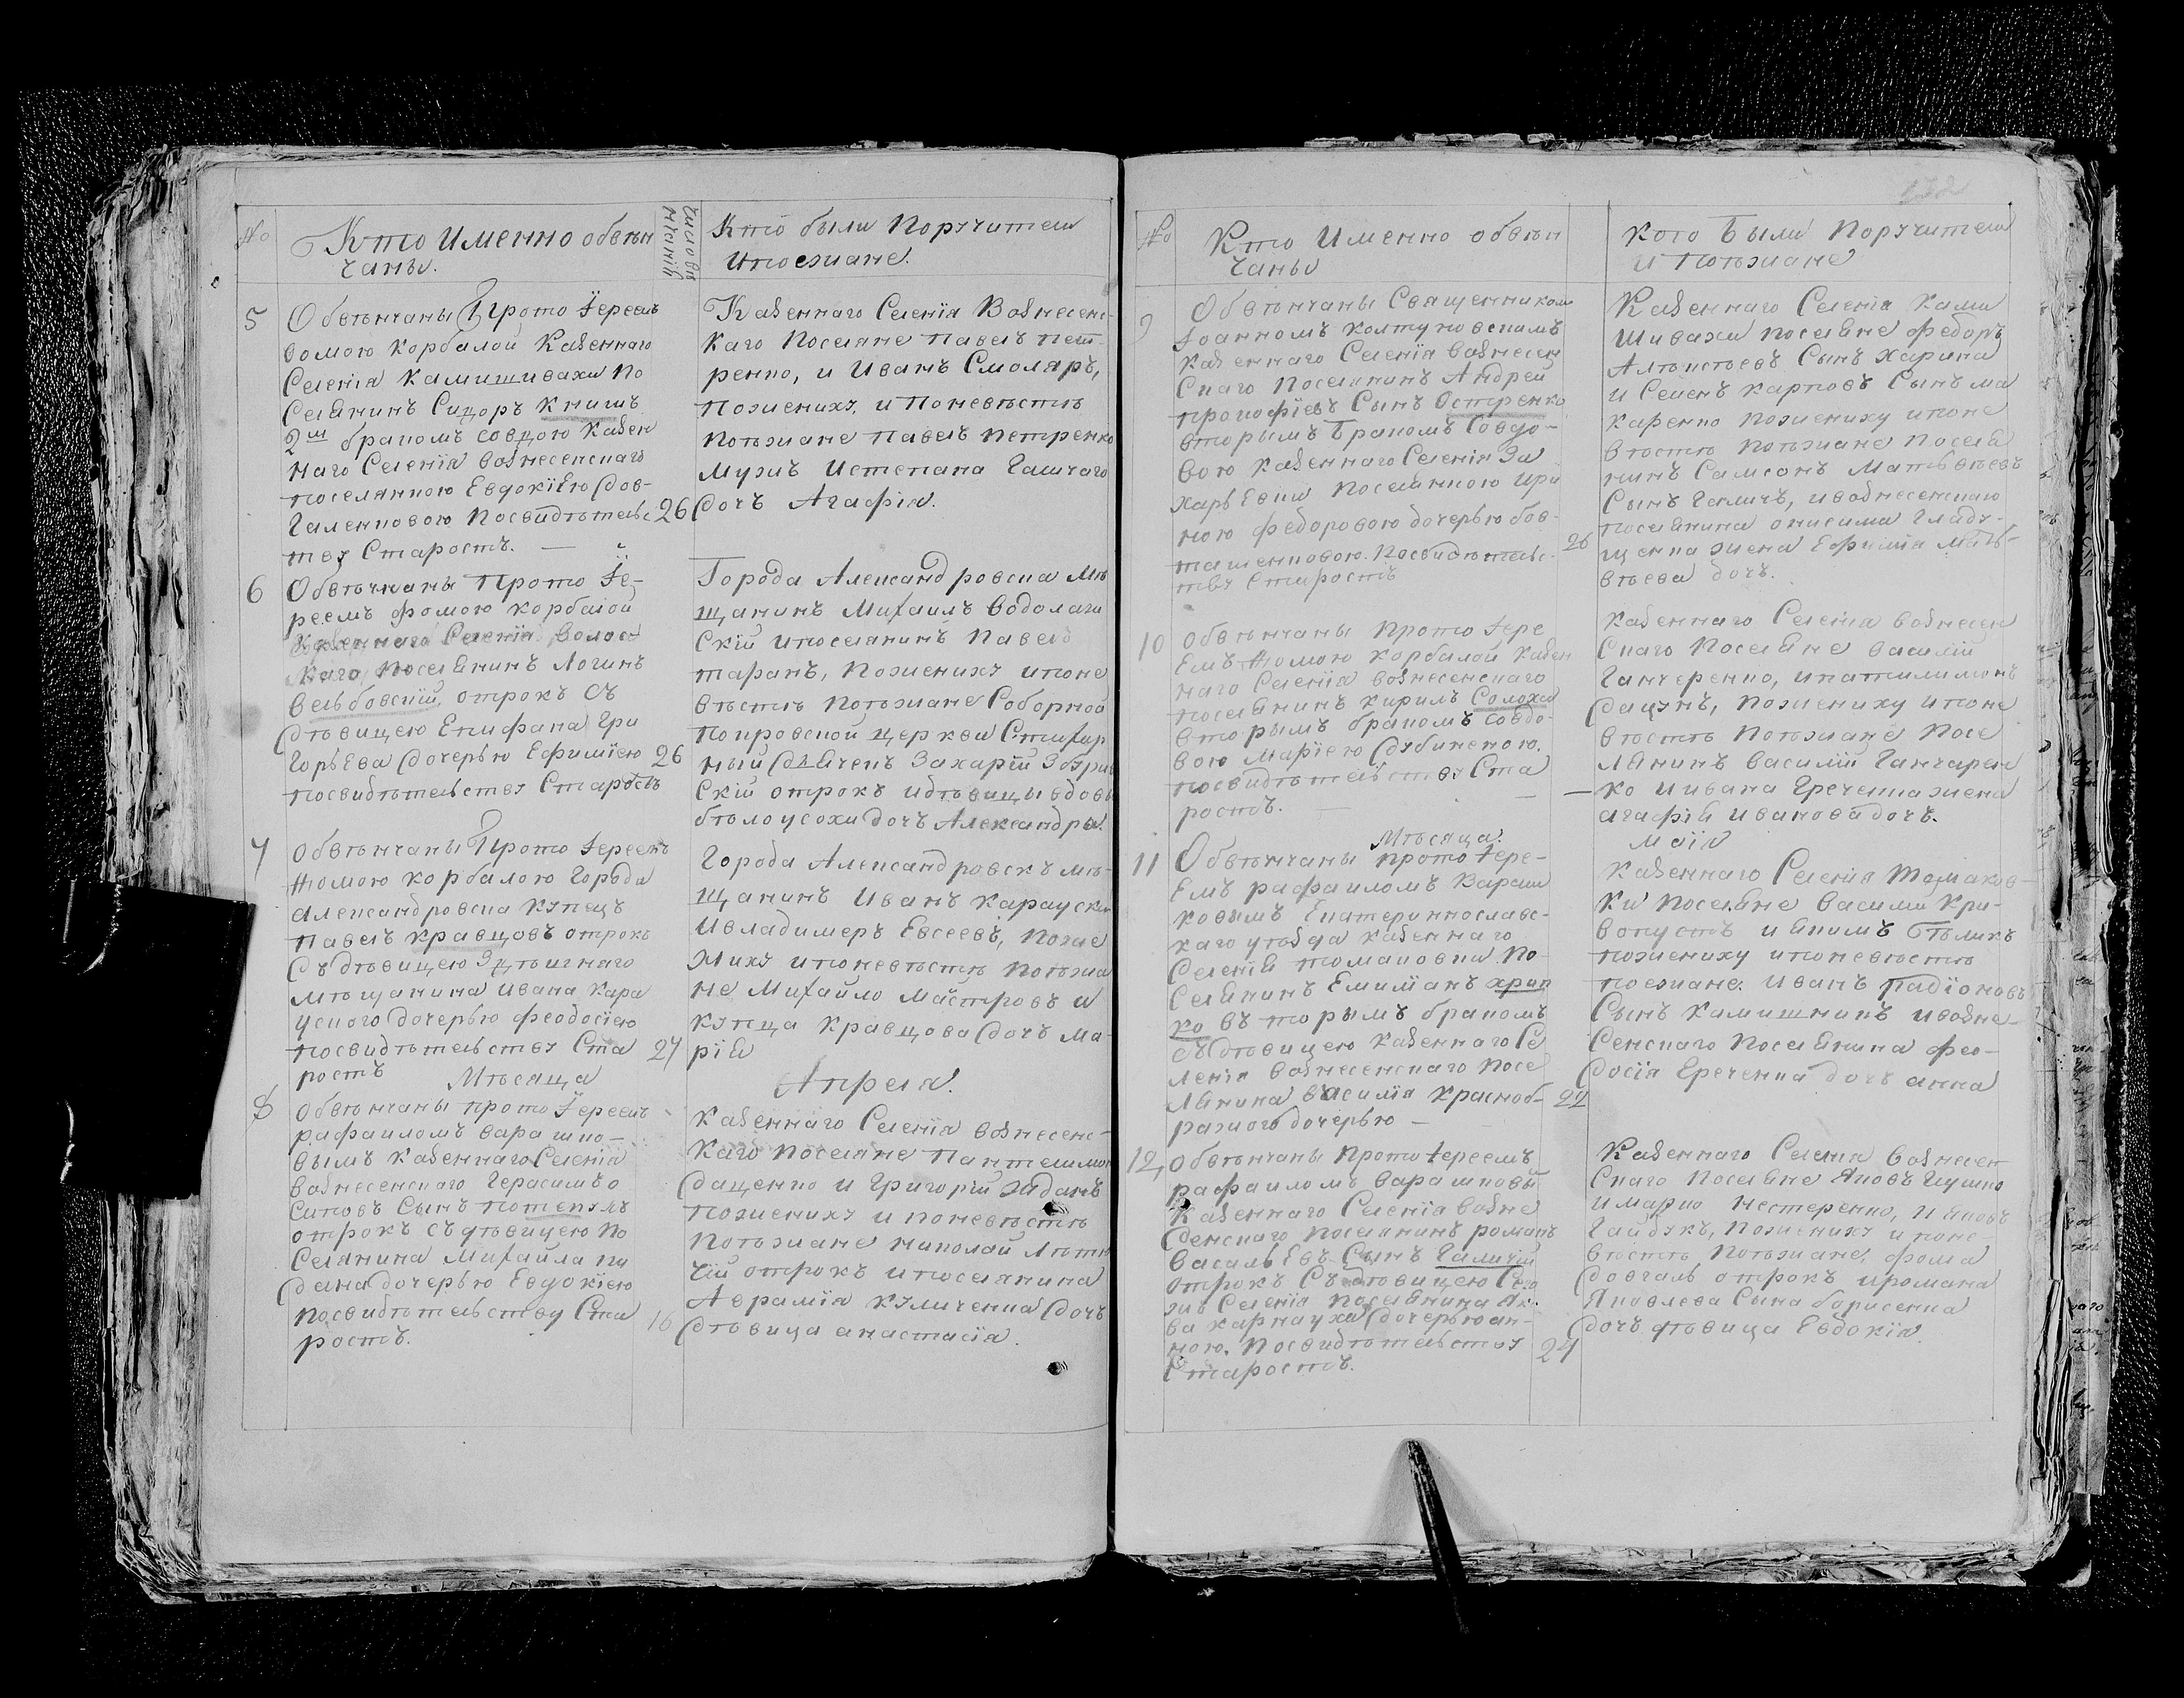 №
Кто Именно обвѣн
чаны.
число вѣ
нчанія
Кто были Поручители
Ипоезжане.
5
Обвѣнчаны Прото Іереемъ
Ѳомою Корбалой Казеннаго
Селенія Камишивахи По
Селянинъ Сидоръ Книшъ
2м бракомъ совдою Казен
наго Селенія вознесенскаго
поселянкою Евдокіею Дов-
Галенковою Посвидѣтельс
тву Старостъ. —
26
Казеннаго Селенія Вознесенс-
Каго Поселяне Павелъ Пет
ренко, и Иванъ Смоляръ,
Поженихѵ, и Поневѣстѣ
Поѣзжане Павелъ Петренко
Мужикъ Истепана Галичаго
Дочъ Агафія.
6
Обвѣнчаны Прото Іе-
реемъ Фомою Корбалой
Казеннаго Селенія Волос-
Каго, Поселянинъ Логинъ
Вельбовскій, отрокъ Съ
Дѣвицею Епифана Гри
Горьева Дочерью Ефиміею
посвидѣтельствѵ Старостъ
26
Города Александровска Мѣ
щанинъ Михаилъ Водолаги
Скій ипоселянинъ Павелъ
таранъ, Поженихѵ ипоне
вѣстѣ Поѣзжане Соборной
Покровской церкви Стихар
ный Дьячекъ Захарій
Скій отрокъ идѣвицы вдовы
бѣлоусохи дочъ Александра.
7
Обвѣнчаны Прото Іереемъ
Ѳомою корбалою Города
Александровска Кѵпецъ
Павелъ Кравцовъ отрокъ
Съ дѣвицею Здѣшняго
мѣщанина Ивана Кара
ускаго дочерью Феодосіею
посвидѣтельствѵ Ста
ростъ
27
Города Александровскъ мѣ-
щанинъ Иванъ Карауски
Ивладимеръ Евсеевъ, Поже
Нихѵ ипоневѣстѣ Поѣзжа
не Михайло Мастровъ и
Кѵпца Кравцова Дочъ Ма-
рія
Мѣсяца
Апреля.
8
Обвѣнчаны протоІереемъ
рафаиломъ варашко-
вымъ Казеннаго Селенія
вознесенскаго Герасимъ о
Сиповъ Сынъ Потепѵлъ
отрокъ Съдѣвицею По
Селянина Михайла
дана дочерью Евдокіею
посвидѣтельству Ста
ростъ.
16
Казеннаго Селенія вознесенс-
Каго поселяне Пантелимо
Даценко и Григорій Жданъ
Поженихѵ и поневѣстѣ
Поѣзжане Николай Лѣтю
чій отрокъ ипоселянина
Аврамія Кѵличенка Дочъ
Дѣвица анастасія.
172
№
Кто Именно обвѣн
чаны
Кого Были Поручители
и Поѣзжане
9
Обвѣнчаны Священникомъ
Іоанномъ колтуновскимъ
Казеннаго Селенія вознесен
Скаго Поселянинъ Андрей
прокофіевъ Сынъ Остренко
вторымъ Бракомъ Совдо-
вою Казеннаго Селенія За
харьЕвки Поселянкою Ири
ною Федоровою дочерью бов-
ташенковою. Посвидѣтельс-
твѵ Старостъ
26
Казеннаго Селенія Ками
Шивахи поселяне Федоръ
Алѣксѣевъ Сынъ Харина
и Семенъ Карповъ Сынъ ма
каренко Пожениху ипоне
вѣстѣ Поѣзжане Поселя
нинъ Самсонъ Матьвѣевъ
Сынъ Галичъ, ивознесенскаго
поселянина онисима Гладу-
щенка жена Ефимія Мать-
вѣева дочъ.
10
Обвѣнчаны Прото Іере
Емъ Ѳомою Корбалой Казен
наго Селенія вознесенскаго
поселянинъ Кирилъ Солоха
вторымъ бракомъ совдо-
вою Марією Дѵбиненкою.
посвидѣтельствѵ Ста
ростъ. —
Казеннаго Селенія вознесен
Скаго Поселяне василій
Ганчеренко, ипатилимонъ
Дацунъ, Пожениху ипоне
вѣстѣ Поѣзжане Посе
Лянинъ василій Ганчарен
— ко иивана Гречешна жена
агафія иванова дочъ.
Мѣсяца.
Маія
11
Обвѣнчаны протоІере-
Емъ рафаиломъ Вараш
ковымъ Екатеринославс-
каго уѣзда Казеннаго
Селенія томаковки По-
Селянинъ Емиліанъ Хрип
ко въторымъ бракомъ
Съдѣвицею Казеннаго Се
ленія вознесенскаго Посе
Лянина василія Красноб-
ражого дочерью —
22
Казеннаго Селенія Томаков-
Ки Поселяне василій Кри-
вопустъ и якимъ Бѣликъ
пожениху ипоневѣстѣ
поезжане. Иванъ радіоновъ
Сынъ Камишникъ ивозне-
Сенскаго Поселянина Фео-
Досія Ереченка дочъ анна
12
Обвѣнчаны ПротоІереемъ
рафаиломъ Варашковы
Казеннаго Селенія возне
Сенскаго поселянинъ романъ
васильЕвъ Сынъ Галичій
отрокъ Съдѣвицею Сего
жъ Селенія Поселянина Як.
ва Карнауха Дочерью ан-
ною. Посвидѣтельствѵ
Старостъ.
24
Казеннаго Селенія вознесен
Скаго Поселяне Яковъ Глушко
имарко Нестеренко, и яковъ
Гайдѵкъ, Поженихѵ ипоне-
вѣстѣ Поѣзжане, Фома
Довгаль отрокъ иромана
Яковлева Сына борисенка
Дочъ дѣвица Евдокія.